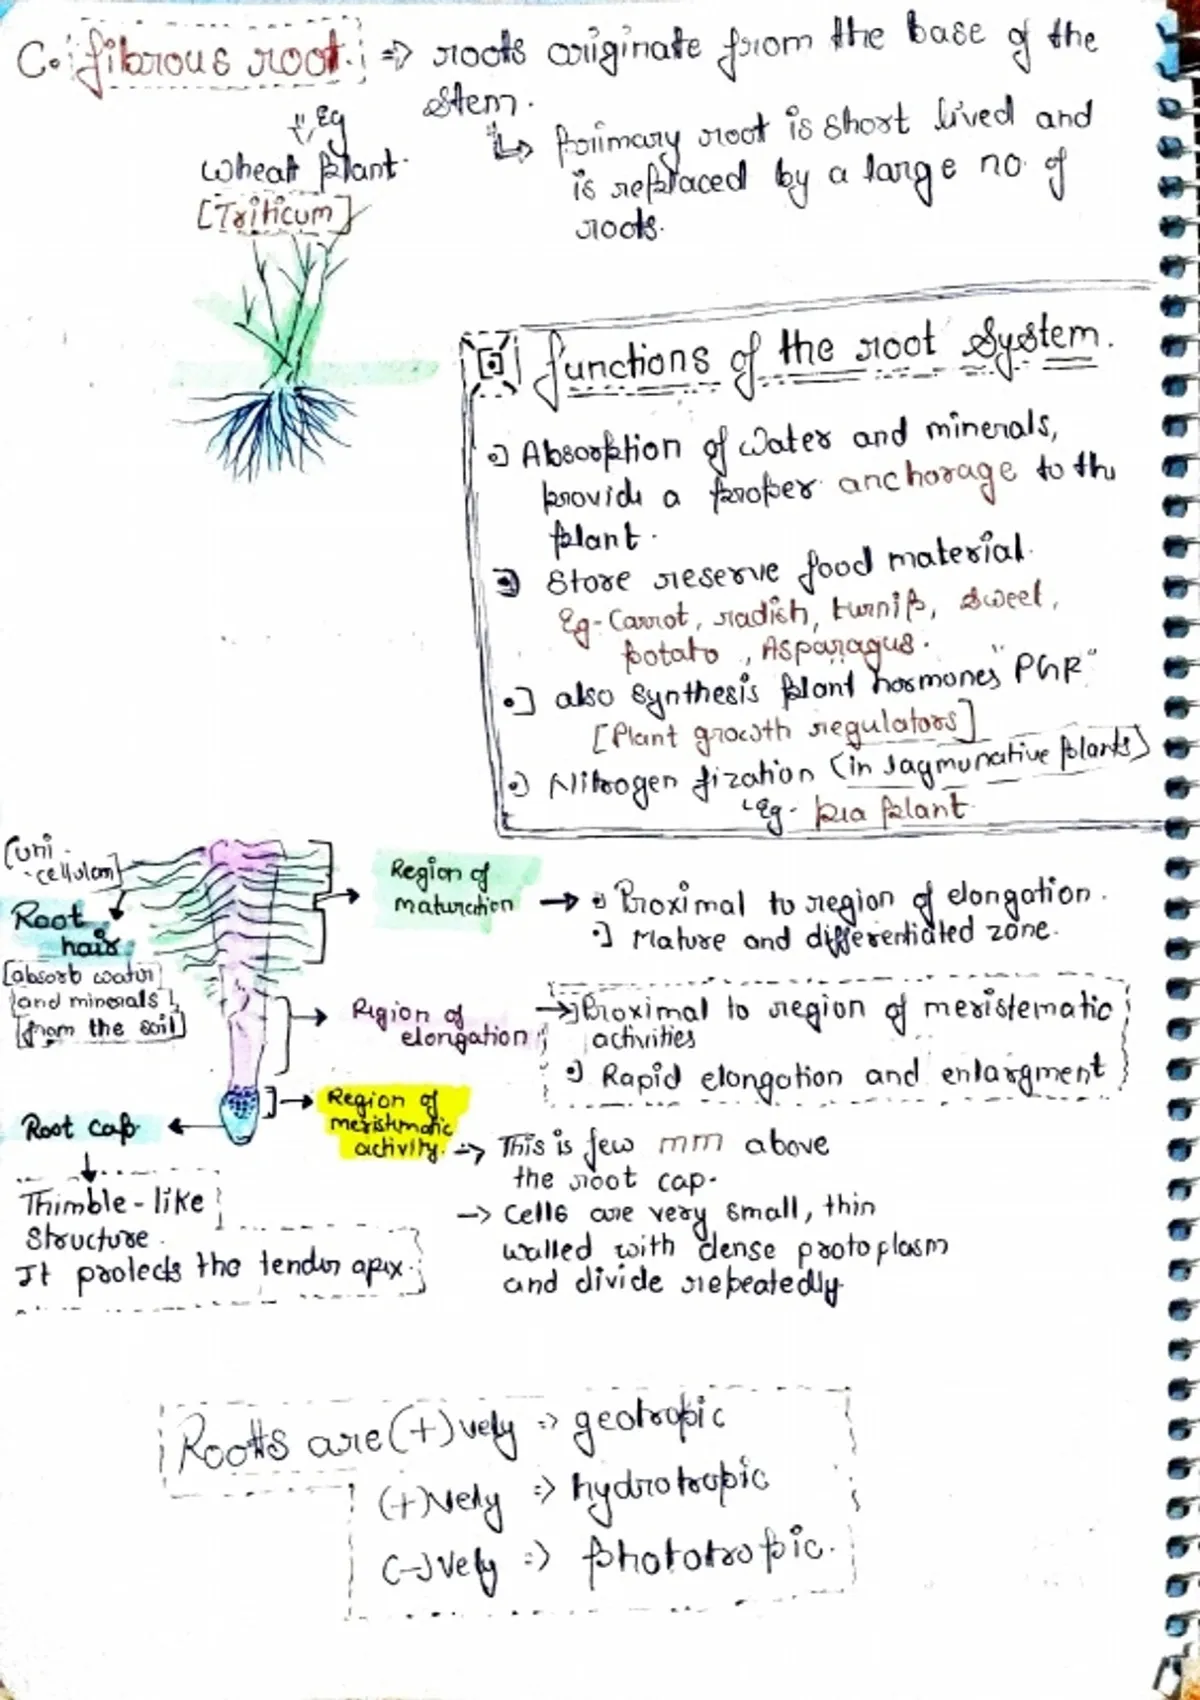 C. fibrous root. => roots originate from the base of the
stem.
Eg
Wheat plant.
[Triticum]
↳ Primary root is short lived and
is replaced by a large no of
roots.
functions of the root System.
Absorption of water and minerals,
provide a proper anchorage to the
plant.
Store reserve food material.
Eg- Carrot, radish, turnip, sweet,
potato, Asparagus.
also synthesis plant hormones "PGR"
[Plant growth regulators]
Nitrogen fixation (in Jagmunative plants)
Eg- pea plant
(uni
-cellular)
Root
hair
[absorb water
and minerals
from the soil]
Region of
maturation → Proximal to region of elongation.
Mature and differentiated zone.
Region of
elongation → Proximal to region of meristematic
activities
Rapid elongation and enlargment
Root cap
Region of
meristmatic
activity. → This is few mm above
the root cap.
→ Cells are very small, thin
walled with dense protoplasm
and divide repeatedly
Thimble-like
structure.
It protects the tender apex.
Roots are (+)vely => geotropic
(+)vely => hydrotropic
(-)vely => phototropic.